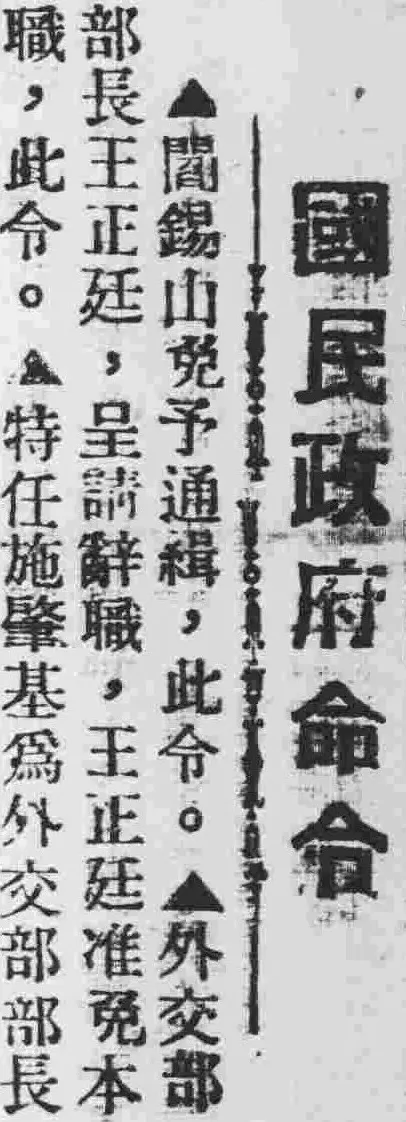 國民政府命令
▲閻錫山免予通緝，此令。▲外交部
部長王正廷，呈請辭職，王正廷准免本
職，此令。▲特任施肇基爲外交部部長